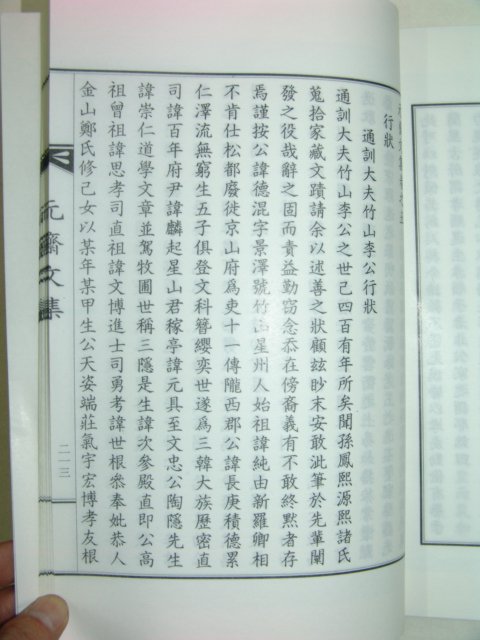 行狀
通訓大夫竹山李公行狀
通訓大夫竹山李公之世已四百有年所矣聞孫鳳熙源熙諸氏
蒐拾家藏文蹟請余以述善之狀顧玆眇末安敢泚筆於先輩闡
發之役哉辭之固而責益勤窃念忝在傍裔義有不敢終黙者存
焉謹按公諱德混字景澤號竹山星州人始祖諱純由新羅卿相
不肯仕松都廢徙京山府爲吏十一傳隴西郡公諱長庚積德累
仁澤流無窮生五子俱登文科簪纓奕世遂爲三韓大族歷密直
司諱百年府尹諱麟起星山君稼亭諱元具至文忠公陶隱先生
諱崇仁道學文章並駕牧圃世稱三隱是生諱次參殿直即公高
祖曾祖諱思孝司直祖諱文博進士司勇考諱世根叅奉妣恭人
金山鄭氏修己女以某年某甲生公天姿端莊氣宇宏博孝友根
元齋文集
二一三